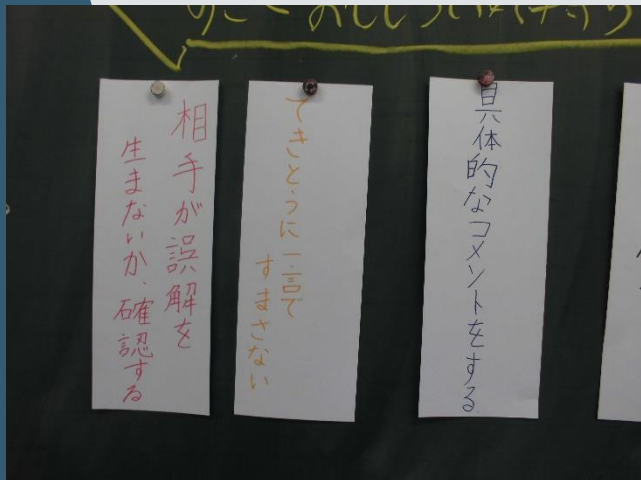 具体的なコメントをする
てきとうに一言で
すまさない
相手が誤解を
生まないか、確認する